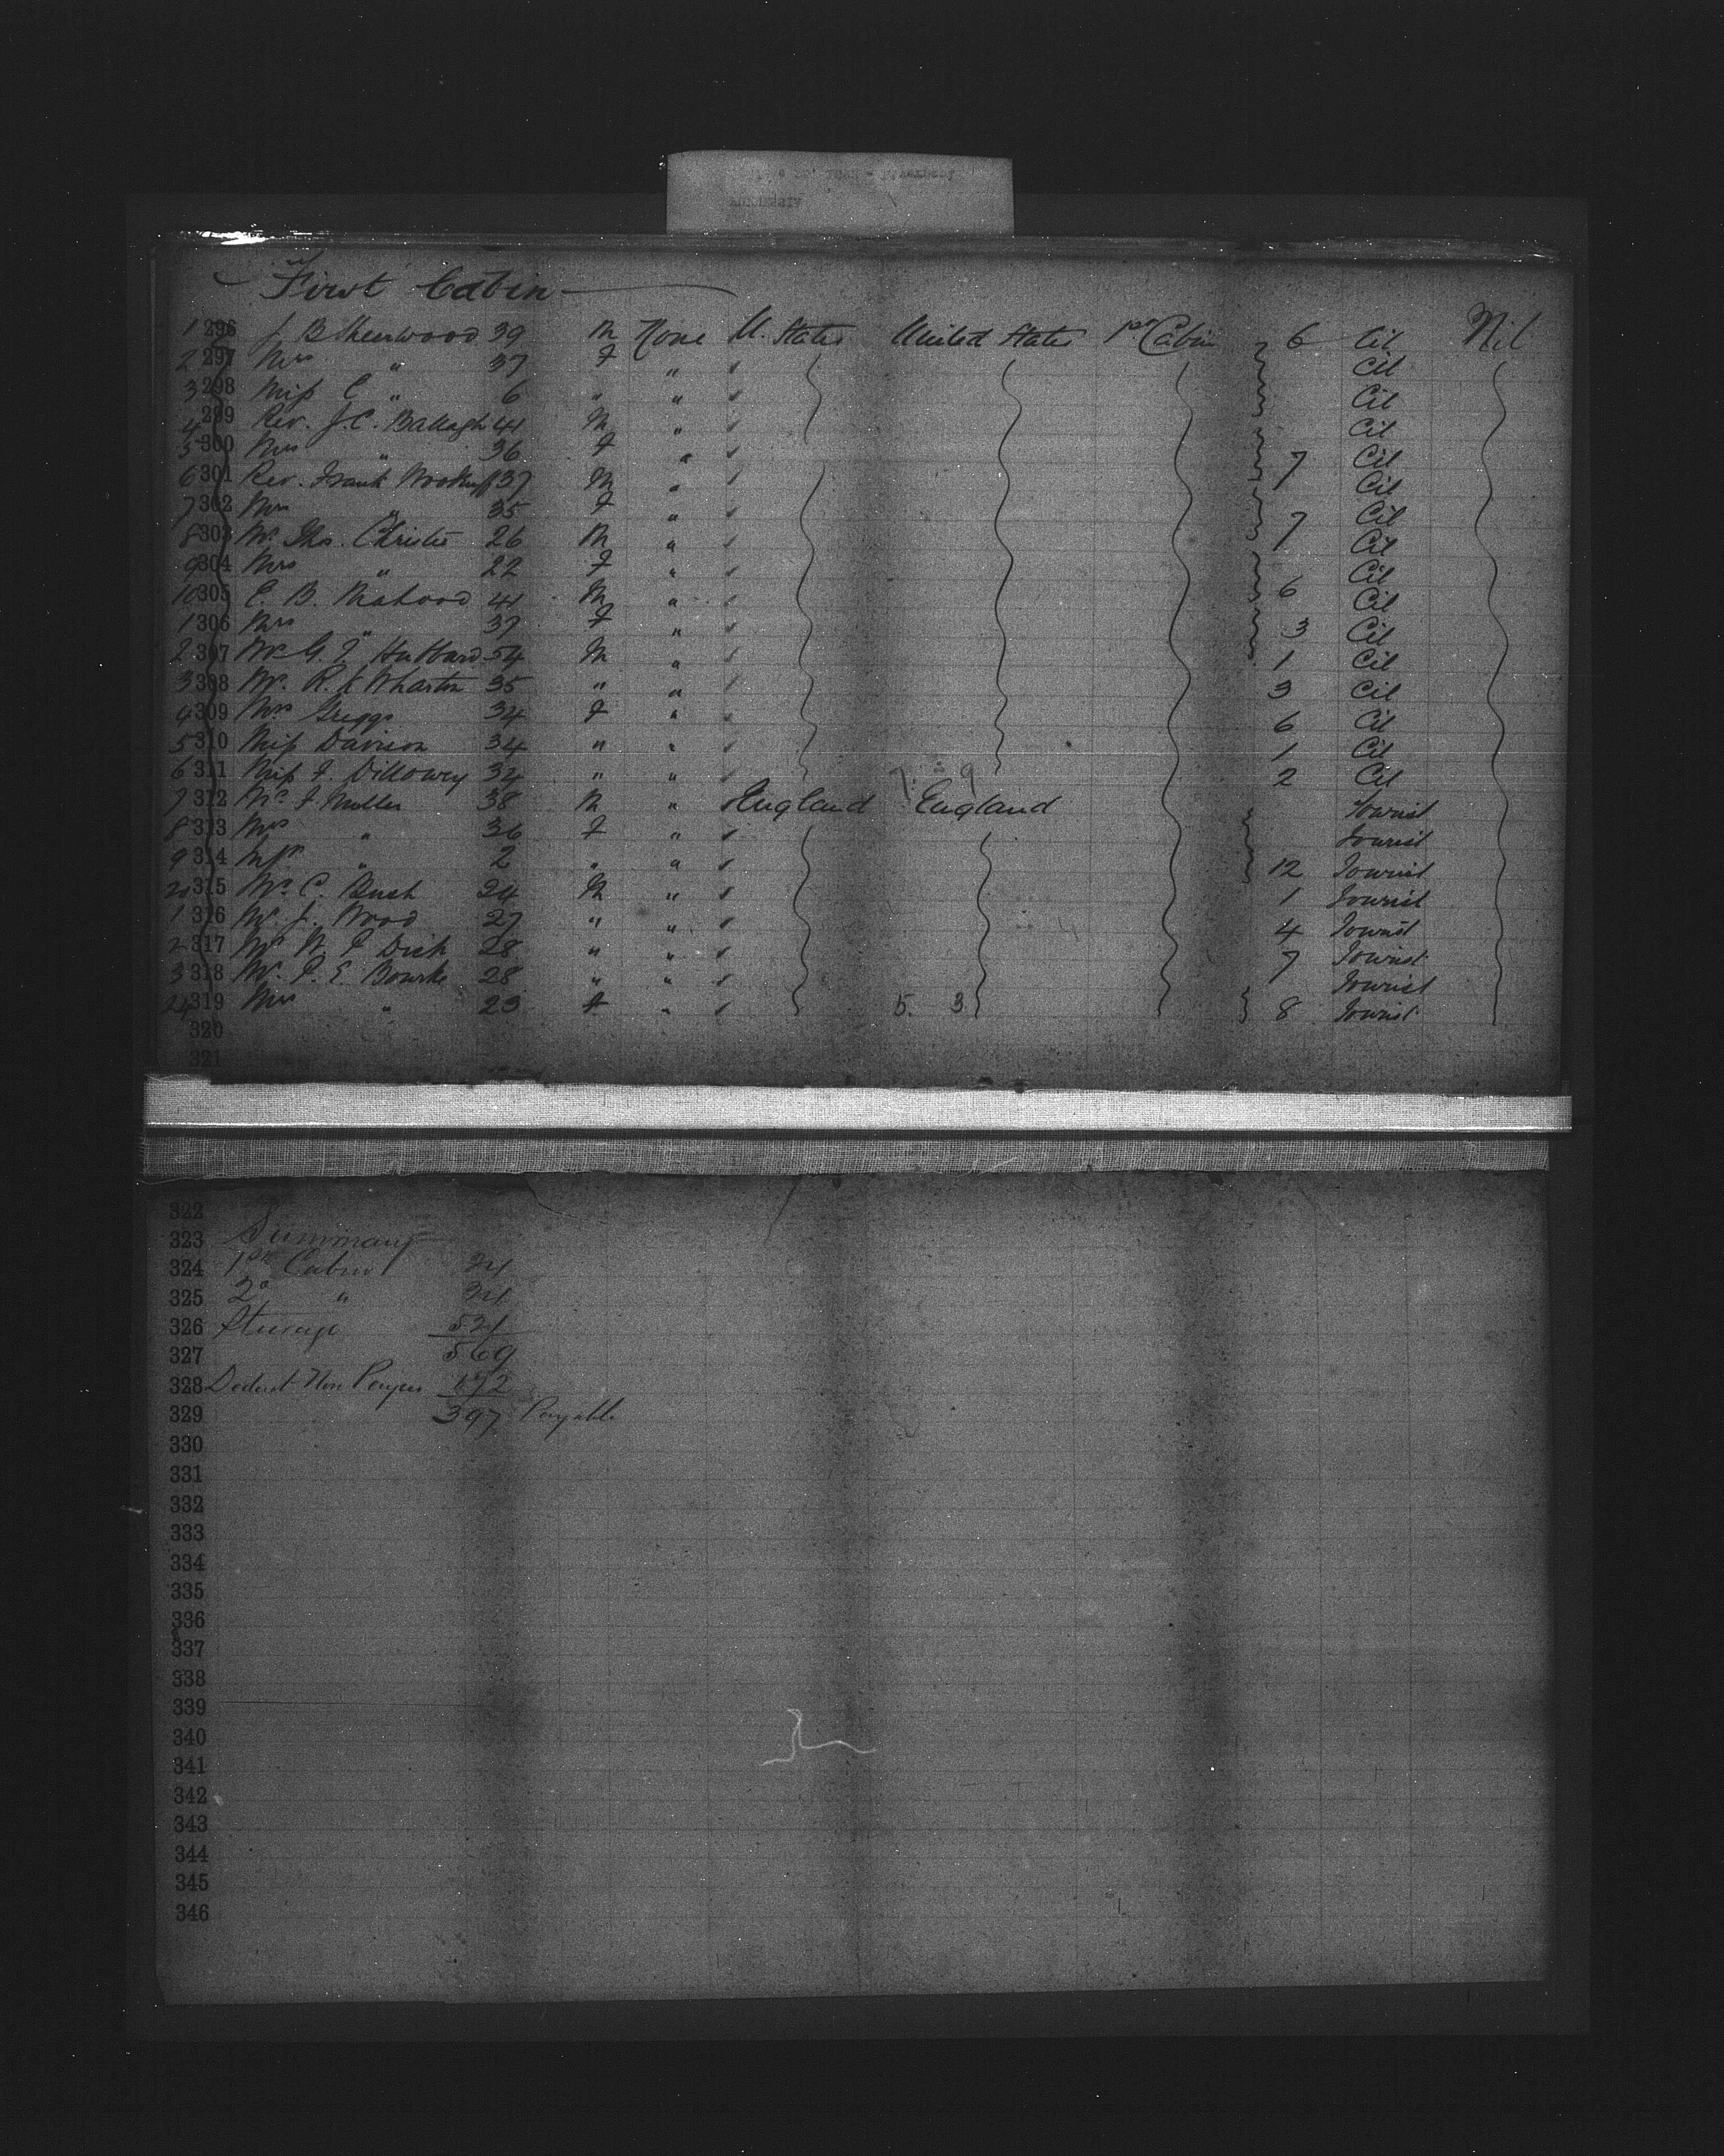 First Cabin
1 296 J B Sheerwood 39 M None U. States United States 1st Cabin 6 Cit Nil
2 297 Mrs " 37 F " " Cit
3 298 Miss E " 6 " " " Cit
4 299 Rev. J. C. Ballagh 41 M " " Cit
5 300 Mrs " 36 F " " 7 Cit
6 301 Rev. Frank 37 M " " Cit
7 302 Mrs " 35 F " " 7 Cit
8 303 Mr Thos. Christie 26 M " " Cit
9 304 Mrs " 22 F " " Cit
10 305 E. B. Mahood 41 M " " 6 Cit
1 306 Mrs " 37 F " " 3 Cit
2 307 Mr G. Hubbard 54 M " " 1 Cit
3 308 Mr. R. Wharton 35 " " " 3 Cit
4 309 Mrs Greggs 34 F " " 6 Cit
5 310 Miss Davison 34 " " " 1 Cit
6 311 Miss F. Dillowey 34 " " " 2 Cit
7 312 Mr F Muller 38 M " England England Tourist
8 313 Mrs " 36 F " " Tourist
9 314 " 2 " " " 12 Tourist
20 315 Mr C. Bush 24 M " " 1 Tourist
1 316 Mr J. Wood 27 " " " 4 Tourist
2 317 Mr W. P Dick 28 " " " 7 Tourist
3 318 Mr. P. E. Bourke 28 " " " Tourist
24 319 Mrs " 23 F " " 5. 3 8 Tourist
320
321
322
323 Summary
324 1st Cabin 24
325 2d " 24
326 Steerage 521
327 569
328 Deduct Non Payers 172
329 397 Payable
330
331
332
333
334
335
336
337
338
339
340
341
342
343
344
345
346